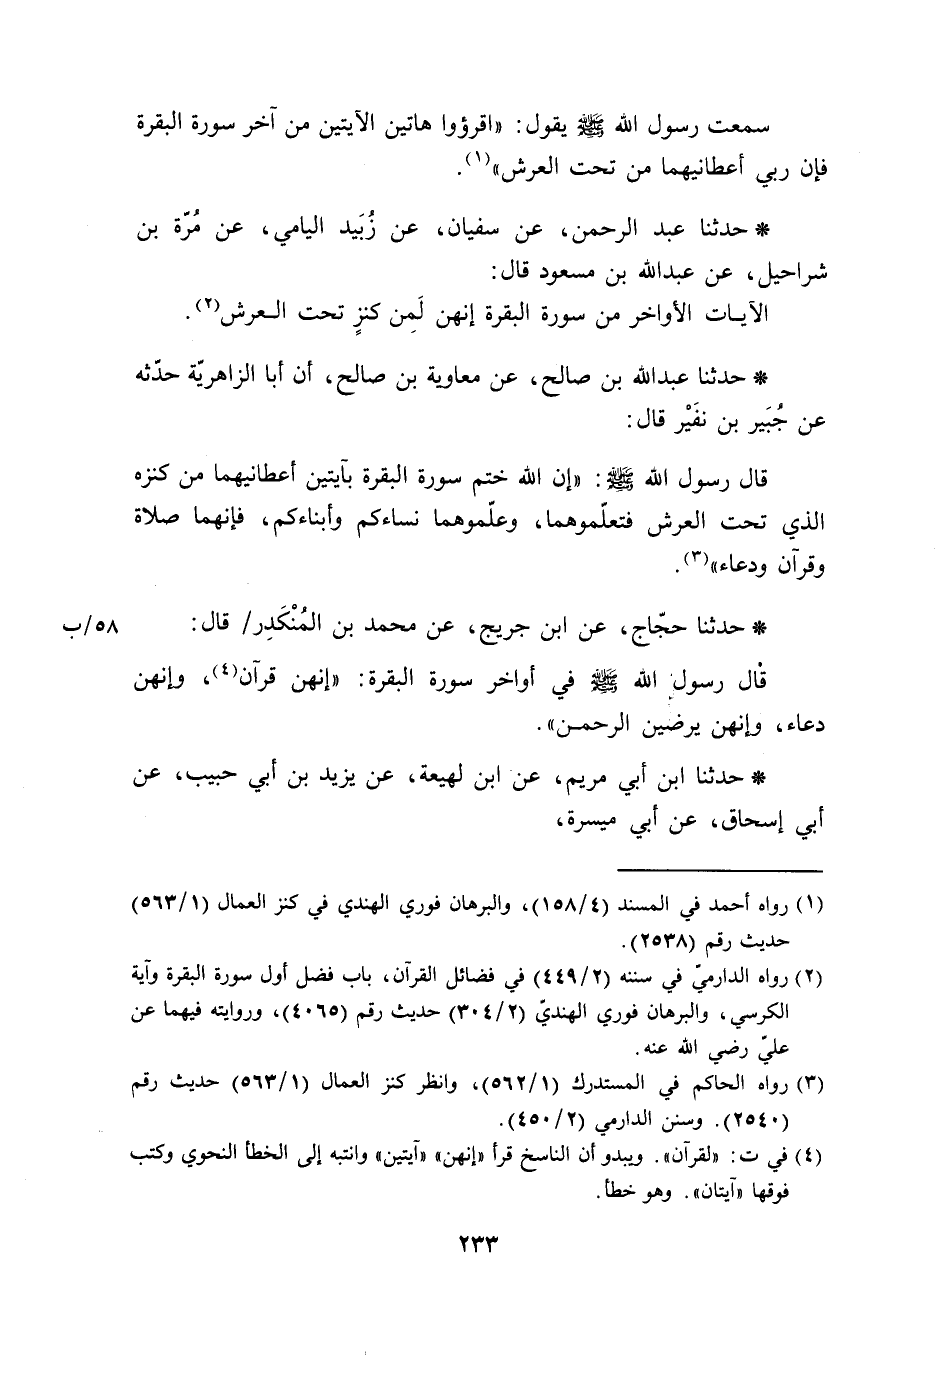 سمعت رسول الله ﷺ يقول: «اقرؤوا هاتين الآيتين من آخر سورة البقرة
فإن ربي أعطانيهما من تحت العرش»(١).
* حدثنا عبد الرحمن، عن سفيان، عن زُبَيد اليامي، عن مُرّة بن
شراحيل، عن عبدالله بن مسعود قال:
الآيـات الأواخر من سورة البقرة إنهن لَمِن كنزٍ تحت الـعرش(٢).
* حدثنا عبدالله بن صالح، عن معاوية بن صالح، أن أبا الزاهريّة حدّثه
عن جُبَير بن نفَيْر قال:
قال رسول الله ﷺ: «إن الله ختم سورة البقرة بآيتين أعطانيهما من كنزه
الذي تحت العرش فتعلّموهما، وعلّموهما نساءكم وأبناءكم، فإنهما صلاة
وقرآن ودعاء»(٣).
* حدثنا حجّاج، عن ابن جريج، عن محمد بن المُنْكَدِر/ قال: ٥٨/ب
قال رسول الله ﷺ في أواخر سورة البقرة: «إنهن قرآن(٤)، وإنهن
دعاء، وإنهن يرضين الرحمـن».
* حدثنا ابن أبي مريم، عن ابن لهيعة، عن يزيد بن أبي حبيب، عن
أبي إسحاق، عن أبي ميسرة،
(١) رواه أحمد في المسند (١٥٨/٤)، والبرهان فوري الهندي في كنز العمال (٥٦٣/١)
حديث رقم (٢٥٣٨).
(٢) رواه الدارميّ في سننه (٤٤٩/٢) في فضائل القرآن، باب فضل أول سورة البقرة وآية
الكرسي، والبرهان فوري الهنديّ (٣٠٤/٢) حديث رقم (٤٠٦٥)، وروايته فيهما عن
عليّ رضي الله عنه.
(٣) رواه الحاكم في المستدرك (٥٦٢/١)، وانظر كنز العمال (٥٦٣/١) حديث رقم
(٢٥٤٠). وسنن الدارمي (٤٥٠/٢).
(٤) في ت: «لقرآن». ويبدو أن الناسخ قرأ «إنهن» «آيتين» وانتبه إلى الخطأ النحوي وكتب
فوقها «آيتان». وهو خطأ.
٢٣٣